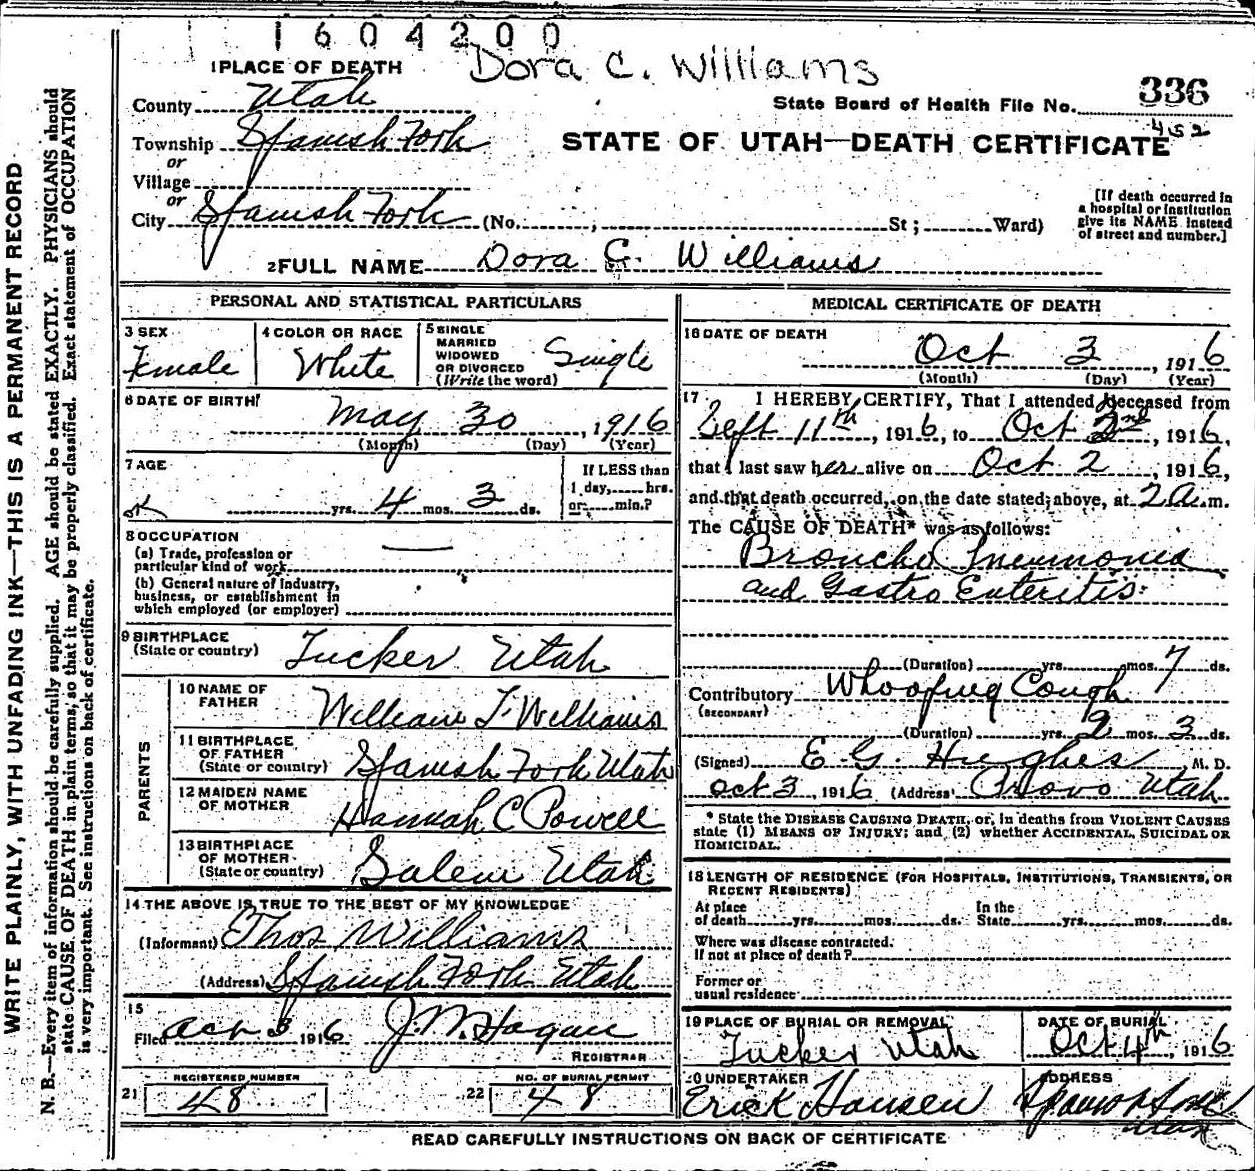 1604200
Dora C. Williams
1 PLACE OF DEATH
County Utah
State Board of Health File No. 336
452
Township Spanish Fork
STATE OF UTAH—DEATH CERTIFICATE
or
Village
or
City Spanish Fork (No. , St ; Ward)
[If death occurred in
a hospital or institution
give its NAME instead
of street and number.]
2 FULL NAME Dora C. Williams
PERSONAL AND STATISTICAL PARTICULARS
3 SEX
Female
4 COLOR OR RACE
White
5 SINGLE
MARRIED
WIDOWED
OR DIVORCED
(Write the word)
Single
6 DATE OF BIRTH
May 30, 1916
(Month) (Day) (Year)
7 AGE
yrs. 4 mos. 3 ds.
If LESS than
1 day, hrs.
or min.?
8 OCCUPATION
(a) Trade, profession or
particular kind of work
(b) General nature of industry,
business, or establishment in
which employed (or employer)
9 BIRTHPLACE
(State or country) Tucker Utah
PARENTS
10 NAME OF
FATHER William T. Williams
11 BIRTHPLACE
OF FATHER
(State or country) Spanish Fork Utah
12 MAIDEN NAME
OF MOTHER Hannah C Powell
13 BIRTHPLACE
OF MOTHER
(State or country) Salem Utah
14 THE ABOVE IS TRUE TO THE BEST OF MY KNOWLEDGE
(Informant) Thos Williams
(Address) Spanish Fork Utah
15
Filed Oct 3 1916 J. W. Hagan
REGISTRAR
REGISTERED NUMBER
21 48
NO. OF BURIAL PERMIT
22 48
MEDICAL CERTIFICATE OF DEATH
16 DATE OF DEATH
Oct 3, 1916
(Month) (Day) (Year)
17 I HEREBY CERTIFY, That I attended deceased from
Sept 11th, 1916, to Oct 2nd, 1916,
that I last saw her alive on Oct 2, 1916,
and that death occurred, on the date stated above, at 2 a.m.
The CAUSE OF DEATH* was as follows:
Broncho Pneumonia
and Gastro Enteritis
(Duration) yrs. mos. 7 ds.
Contributory Whooping Cough
(SECONDARY)
(Duration) yrs. 2 mos. 3 ds.
(Signed) E G. Hughes, M. D.
Oct 3, 1916 (Address) Provo Utah
* State the DISEASE CAUSING DEATH, or, in deaths from VIOLENT CAUSES
state (1) MEANS OF INJURY; and (2) whether ACCIDENTAL, SUICIDAL OR
HOMICIDAL.
18 LENGTH OF RESIDENCE (FOR HOSPITALS, INSTITUTIONS, TRANSIENTS, OR
RECENT RESIDENTS)
At place
of death yrs. mos. ds.
In the
State yrs. mos. ds.
Where was disease contracted.
If not at place of death?
Former or
usual residence
19 PLACE OF BURIAL OR REMOVAL
Tucker Utah
DATE OF BURIAL
Oct 4th, 1916
20 UNDERTAKER
Erick Hansen
ADDRESS
Utah
READ CAREFULLY INSTRUCTIONS ON BACK OF CERTIFICATE
WRITE PLAINLY, WITH UNFADING INK—THIS IS A PERMANENT RECORD
N. B.—Every item of information should be carefully supplied. AGE should be stated EXACTLY. PHYSICIANS should
state CAUSE OF DEATH in plain terms, so that it may be properly classified. Exact statement of OCCUPATION
is very important. See instructions on back of certificate.